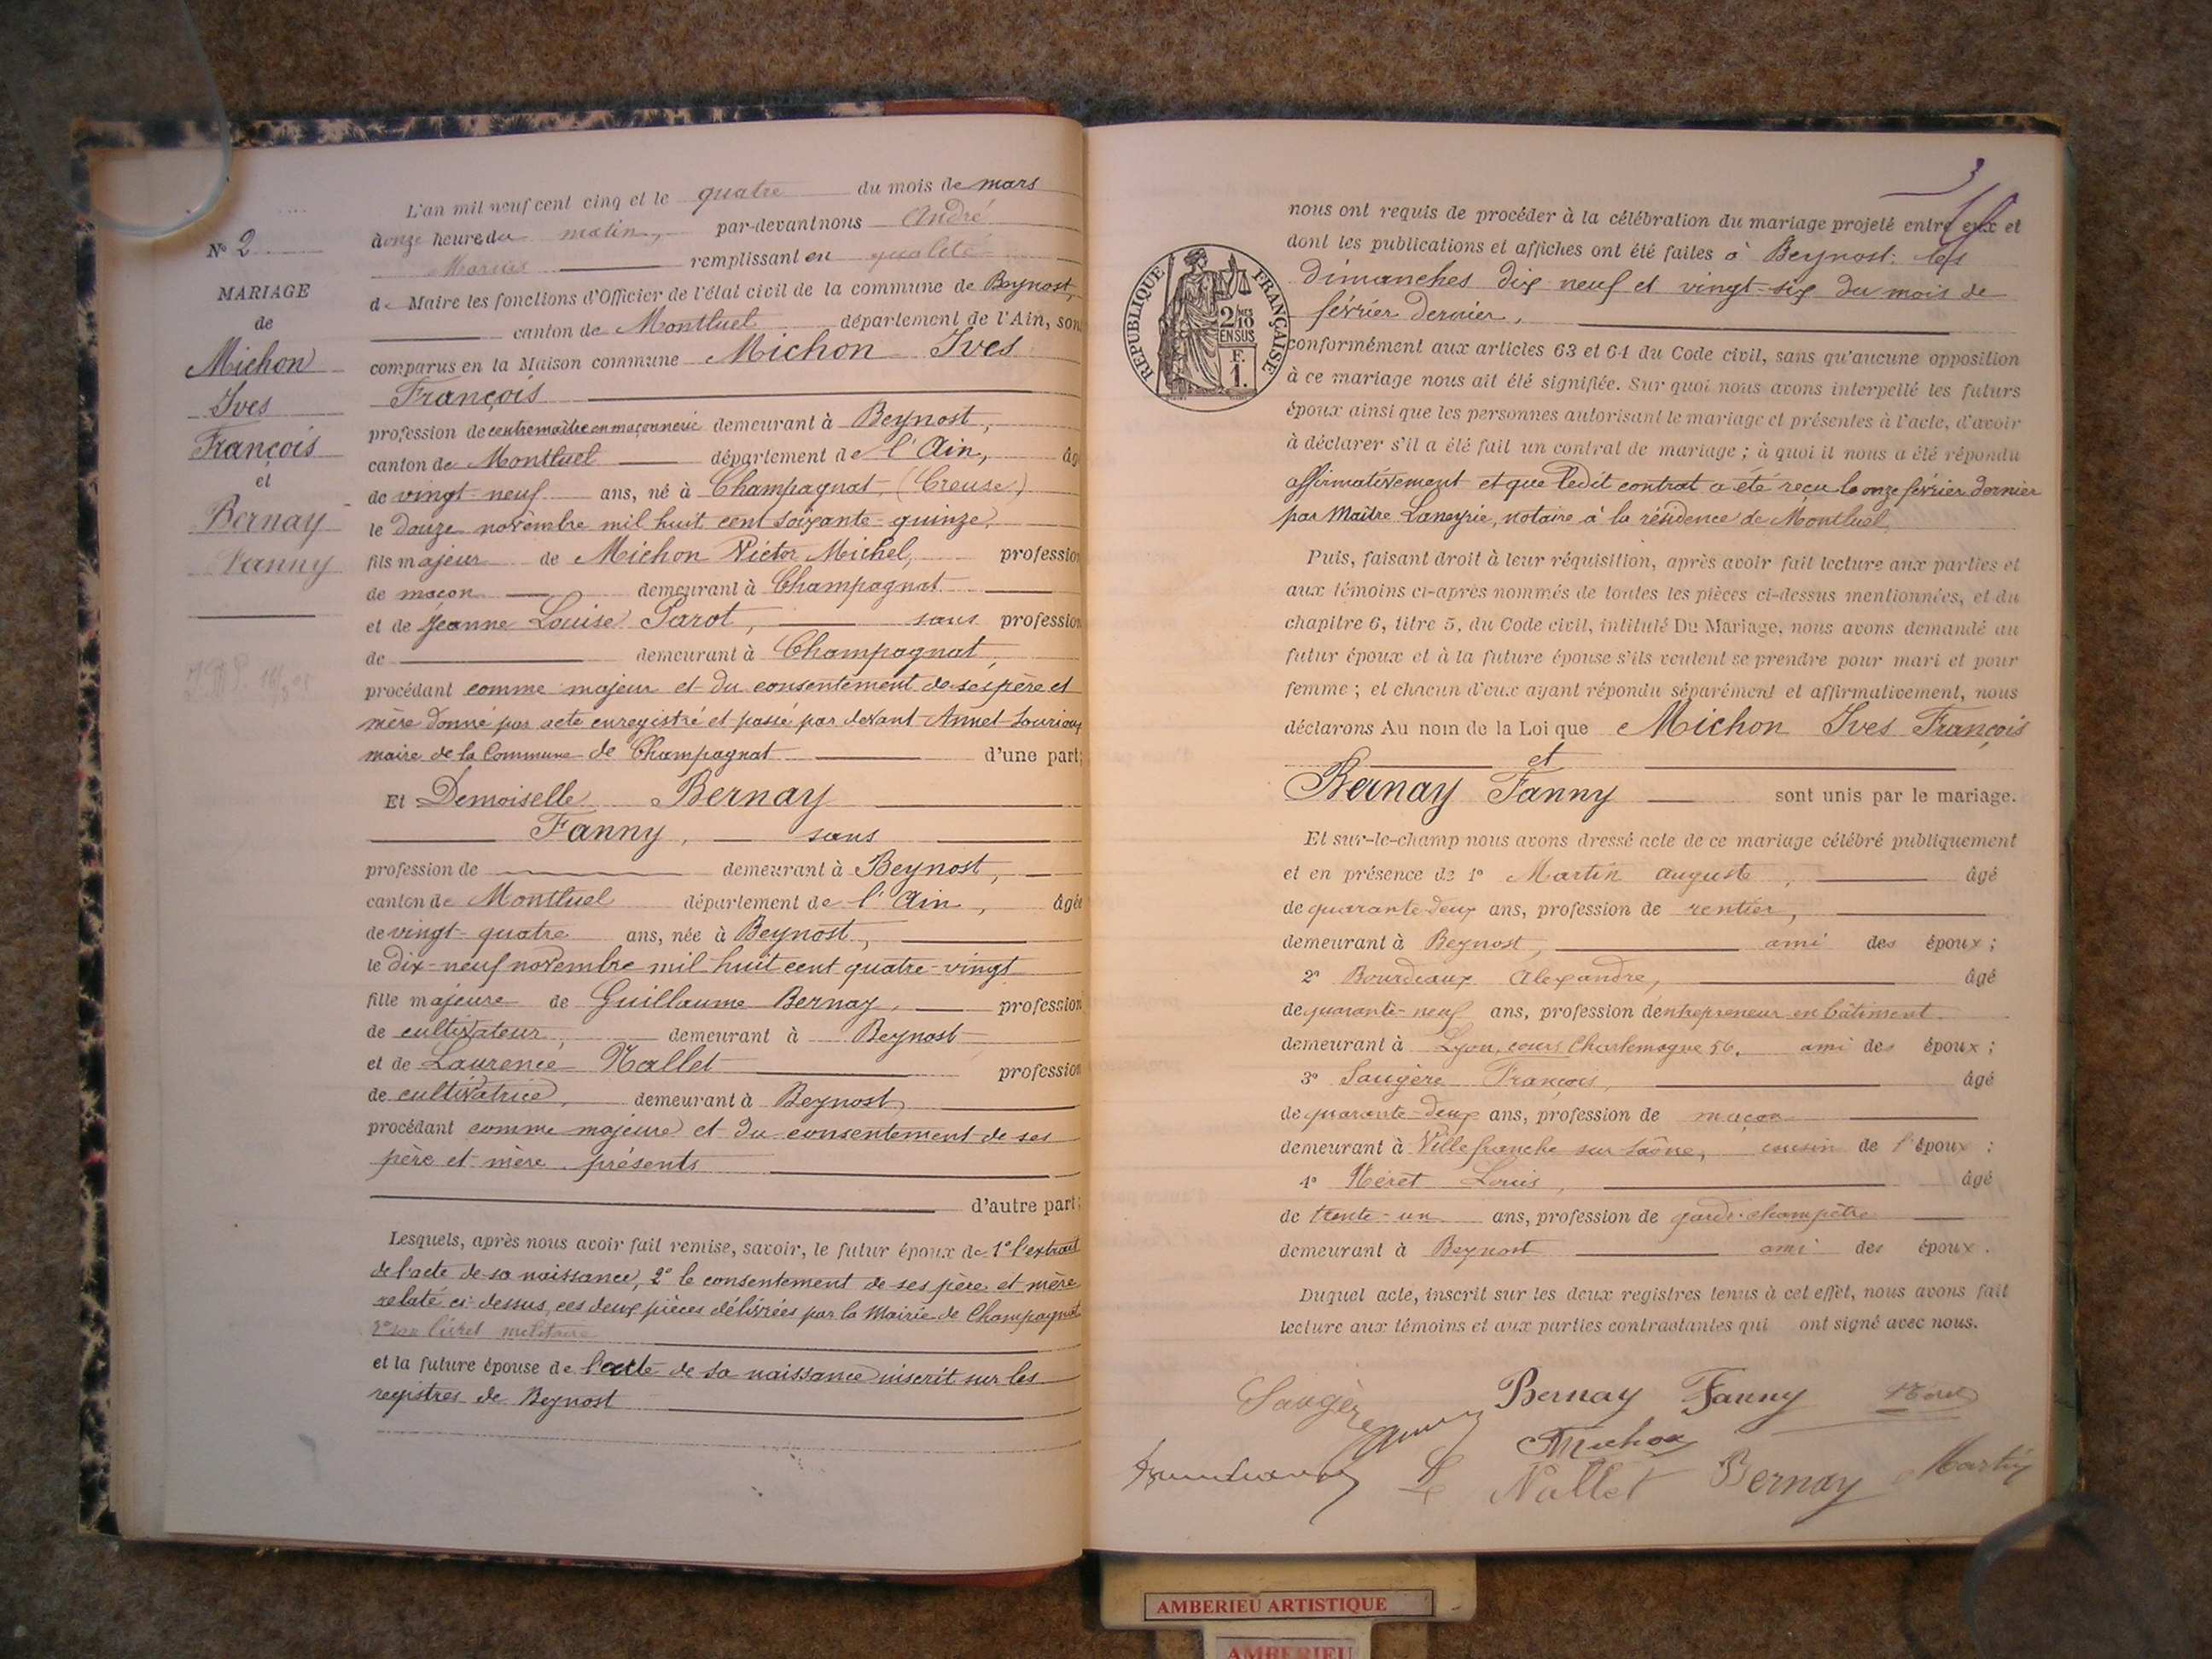 N° 2
MARIAGE
de
Michon
Yves
François
et
Bernay
Fanny
L'an mil neuf cent cinq et le quatre du mois de mars
à onze heure du matin, par-devant nous André
Marius remplissant en qualité
de Maire les fonctions d'Officier de l'état civil de la commune de Beynost,
canton de Montluel département de l'Ain, son
comparus en la Maison commune Michon Yves
François
profession de contremaître en maçonnerie demeurant à Beynost,
canton de Montluel département de l'Ain, âg
de vingt-neuf ans, né à Champagnat (Creuse)
le douze novembre mil huit cent soixante-quinze,
fils majeur de Michon Victor Michel, profession
de maçon demeurant à Champagnat
et de Jeanne Louise Parot, sans profession
de demeurant à Champagnat,
procédant comme majeur et du consentement de ses père et
mère donné par acte enregistré et passé par devant Annet
maire de la Commune de Champagnat d'une part;
Et Demoiselle Bernay
Fanny, sans
profession de demeurant à Beynost,
canton de Montluel département de l'Ain, âgée
de vingt-quatre ans, née à Beynost,
le dix-neuf novembre mil huit cent quatre-vingt
fille majeure de Guillaume Bernay, profession
de cultivateur, demeurant à Beynost
et de Laurence Nallet profession
de cultivatrice, demeurant à Beynost,
procédant comme majeure et du consentement de ses
père et mère présents
d'autre part;
Lesquels, après nous avoir fait remise, savoir, le futur époux de 1° l'extrait
de l'acte de sa naissance, 2° le consentement de ses père et mère
relaté ci-dessus, ces deux pièces délivrées par la Mairie de Champagnat
3° son livret militaire
et la future épouse de l'acte de sa naissance inscrit sur les
registres de Beynost
3
nous ont requis de procéder à la célébration du mariage projeté entre eux et
dont les publications et affiches ont été faites à Beynost: les
dimanches dix-neuf et vingt-six du mois de
février dernier,
REPUBLIQUE FRANÇAISE
2/10 MES
EN SUS
F.
1.
conformément aux articles 63 et 64 du Code civil, sans qu'aucune opposition
à ce mariage nous ait été signifiée. Sur quoi nous avons interpellé les futurs
époux ainsi que les personnes autorisant le mariage et présentes à l'acte, d'avoir
à déclarer s'il a été fait un contrat de mariage; à quoi il nous a été répondu
affirmativement et que ledit contrat a été reçu le onze février dernier
par Maître Laneyrie, notaire à la résidence de Montluel
Puis, faisant droit à leur réquisition, après avoir fait lecture aux parties et
aux témoins ci-après nommés de toutes les pièces ci-dessus mentionnées, et du
chapitre 6, titre 5, du Code civil, intitulé Du Mariage, nous avons demandé au
futur époux et à la future épouse s'ils veulent se prendre pour mari et pour
femme; et chacun d'eux ayant répondu séparément et affirmativement, nous
déclarons Au nom de la Loi que Michon Yves François
et
Bernay Fanny sont unis par le mariage.
Et sur-le-champ nous avons dressé acte de ce mariage célébré publiquement
et en présence de 1° Martin Auguste, âgé
de quarante-deux ans, profession de rentier,
demeurant à Beynost, ami des époux;
2° Bourdeaux Alexandre, âgé
de quarante-neuf ans, profession d'entrepreneur en bâtiment.
demeurant à Lyon, cours Charlemagne 56. ami des époux;
3° Saugère François, âgé
de quarante-deux ans, profession de maçon
demeurant à Villefranche sur Saône, cousin de l'époux;
4° Héret Louis, âgé
de trente-un ans, profession de garde-champêtre
demeurant à Beynost ami des époux.
Duquel acte, inscrit sur les deux registres tenus à cet effet, nous avons fait
lecture aux témoins et aux parties contractantes qui ont signé avec nous.
Saugère Bernay Fanny Héret
Michon
L Nallet Bernay Martin
AMBERIEU ARTISTIQUE
AMBERIEU